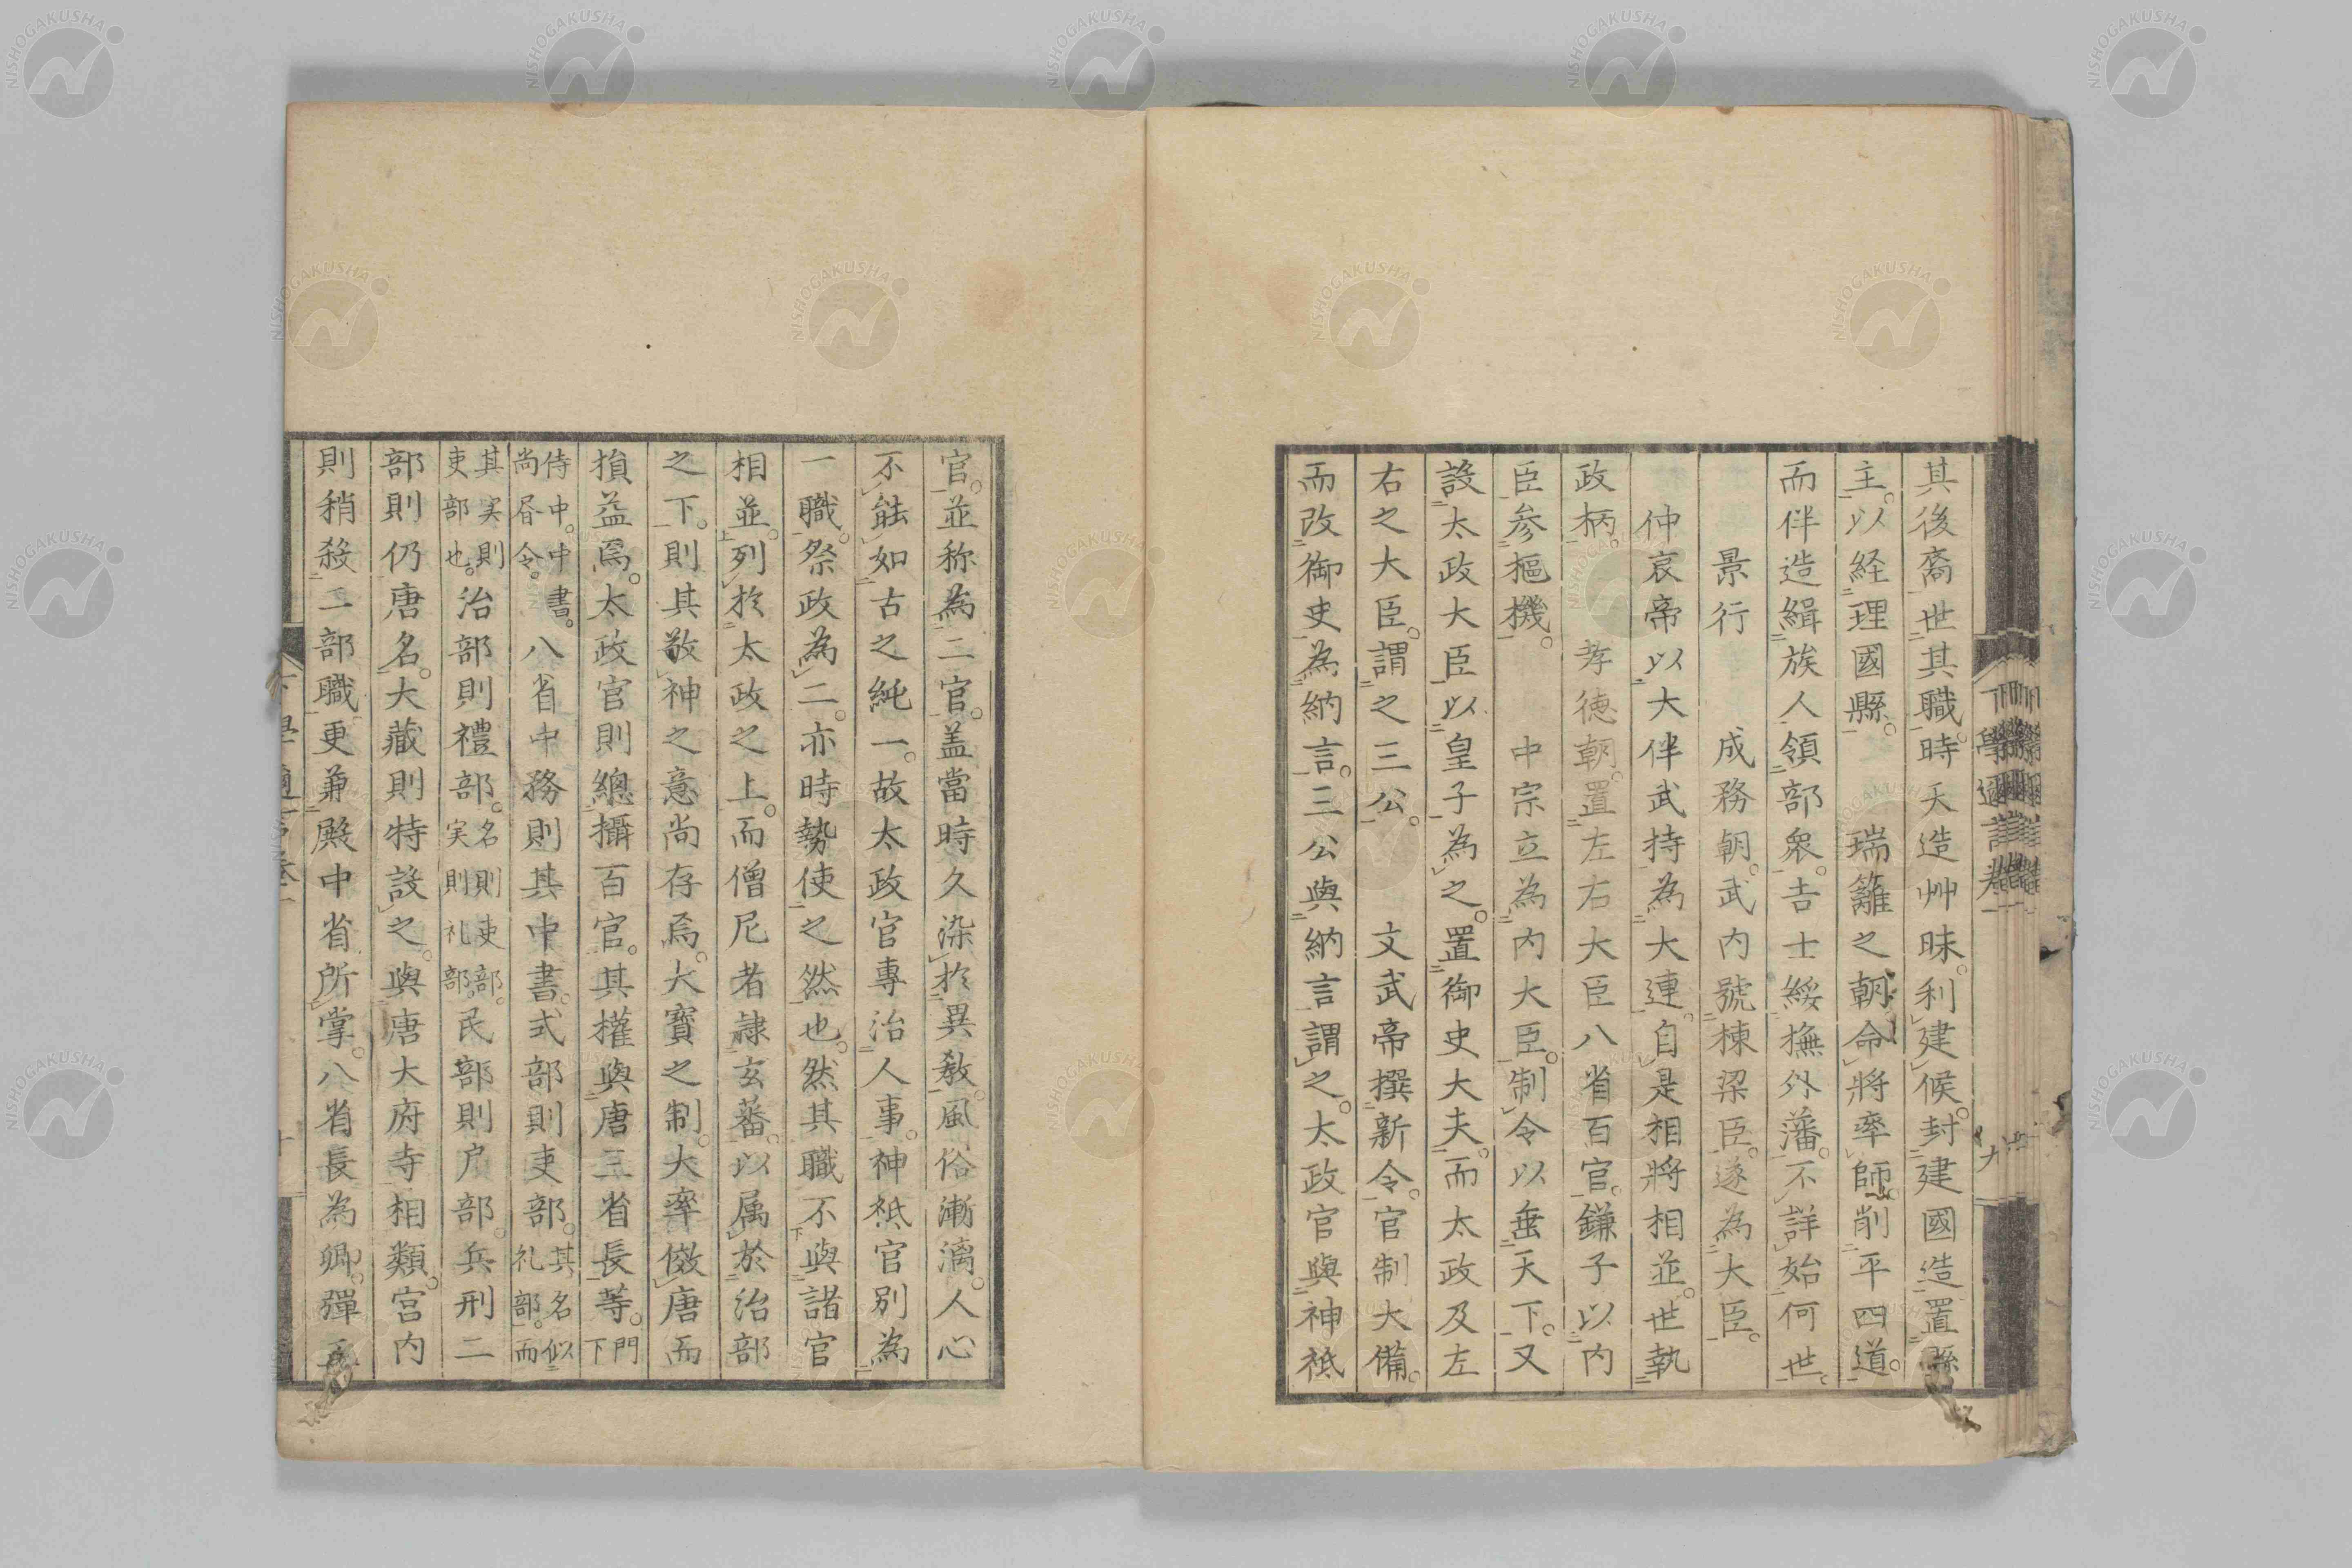 其後裔世其職時天造艸昧利建候封建國造置縣
主以経理國縣　瑞籬之朝命將率師削平四道
而伴造緝族人領部衆吉士綏撫外藩不詳始何世
景行　成務朝武内號棟梁臣遂為大臣
仲哀帝以大伴武持為大連自是相將相並世執
政柄　孝徳朝置左右大臣八省百官鎌子以内
臣参樞機　中宗立為内大臣制令以垂天下又
設太政大臣以皇子為之置御史大夫而太政及左
右之大臣謂之三公　文武帝撰新令官制大備
而改御史為納言三公與納言謂之太政官與神祇
官並称為二官盖當時久染於異教風俗漸漓人心
不能如古之純一故太政官專治人事神祇官別為
一職祭政為二亦時勢使之然也然其職不與諸官
相並列於太政之上而僧尼者隷玄蕃以属於治部
之下則其敬神之意尚存焉大寶之制大率傚唐而
損益焉太政官則總攝百官其權與唐三省長等門下
侍中中書尚書令八省中務則其中書式部則吏部其名似礼部而
其実則吏部也治部則禮部名則吏部実則礼部民部則戸部兵刑二
部則仍唐名大藏則特設之與唐大府寺相類宮内
則稍殺二部職更兼殿中省所掌八省長為卿彈